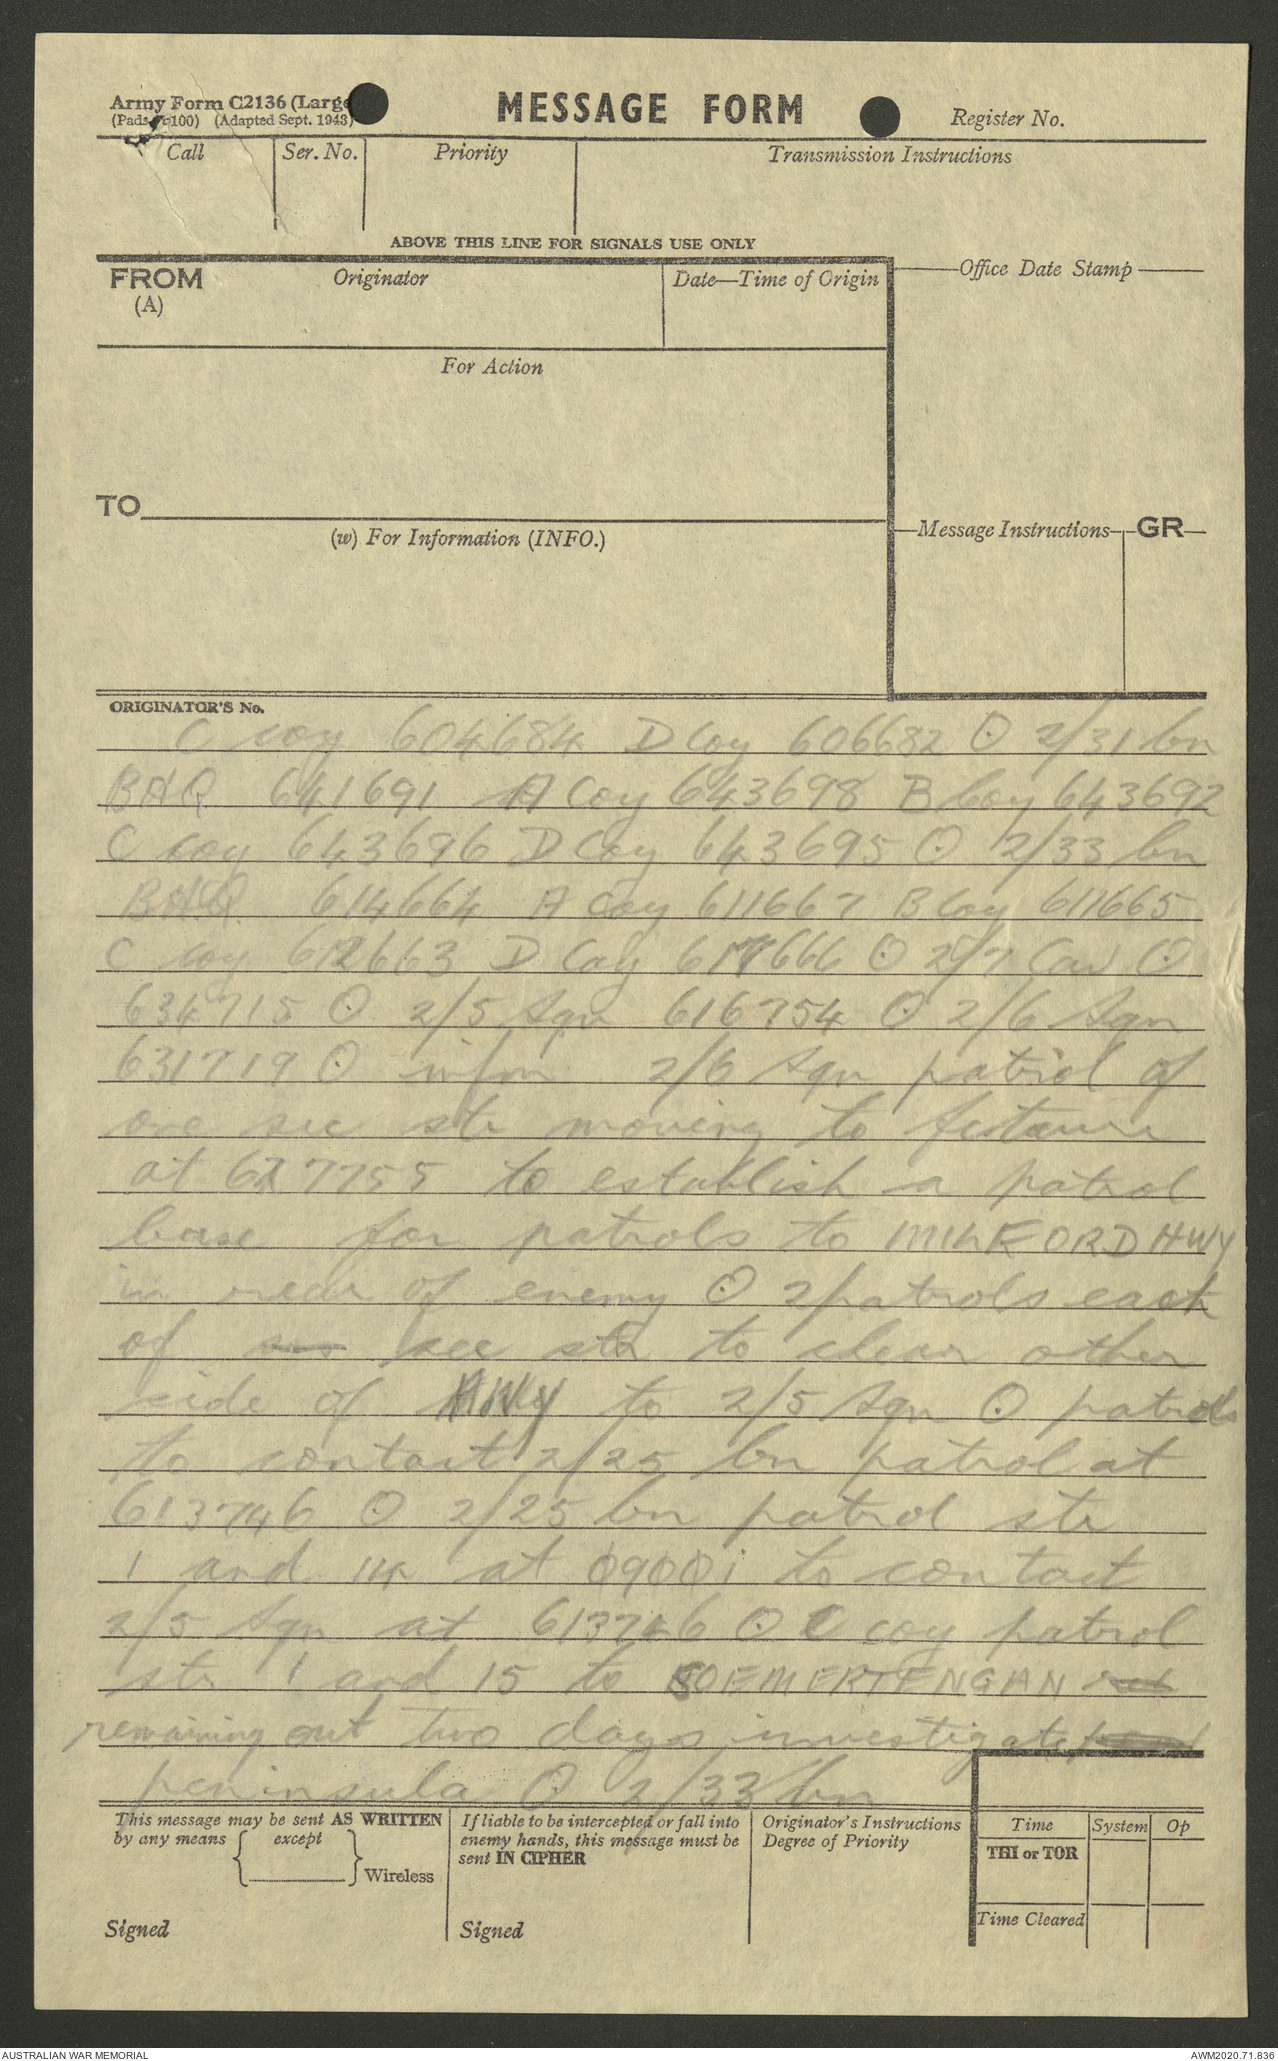 Army Form C2136 (Large
(Pads of 100) (Adapted Sept. 1943)
MESSAGE FORM
Register No.
Call
Ser. No.
Priority
Transmission Instructions
ABOVE THIS LINE FOR SIGNALS USE ONLY
FROM
(A)
Originator
Date—Time of Origin
Office Date Stamp
For Action
TO
(w) For Information (INFO.)
Message Instructions
GR
ORIGINATOR'S No.
C coy 604684 D Coy 606682 O 2/31 bn
BHQ 641691 A Coy 643698 B Coy 643692
C coy 643696 D Coy 643695 O 2/33 bn
BHQ 614664 A Coy 611667 B Coy 611665
C coy 612663 D Coy 666 O 2/7 Cav O
634715 O 2/5 Sqn 616754 O 2/6 Sqn
631719 O infm 2/6 Sqn patrol of
one sec str moving to feature
at 627755 to establish a patrol
base for patrols to MILFORD HWY
in rear of enemy O 2 patrols each
of sec str to clear other
side of HWY to 2/5 Sqn O patrols
to contact 2/25 bn patrol at
613746 O 2/25 bn patrol str
1 and 14 at 0900i to contact
2/5 Sqn at 613746 O C coy patrol
str 1 and 15 to SOEMERTENGAN
remaining out two days investigate
peninsula O 2/33 bn
This message may be sent AS WRITTEN
by any means { except } Wireless
Signed
If liable to be intercepted or fall into
enemy hands, this message must be
sent IN CIPHER
Signed
Originator's Instructions
Degree of Priority
Time
System
Op
THI or TOR
Time Cleared
AUSTRALIAN WAR MEMORIAL
AWM2020.71.836